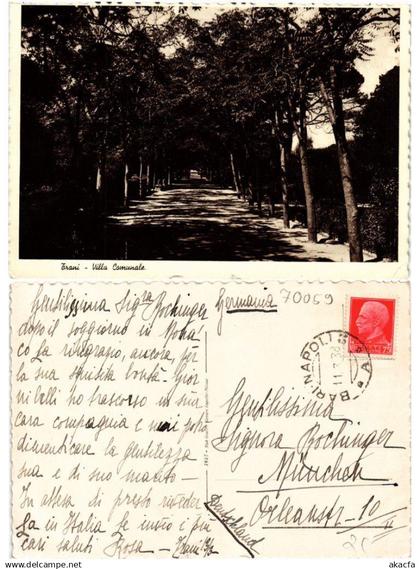 Trani - Villa Comunale
Gentilissima Sig.ra Bochinger
dopo il soggiorno in Mona-
co la ringrazio, ancora, per
la sua squisita bontà. Gior-
ni belli ho trascorso in sua
cara compagnia e mai potrò
dimenticare la gentilezza
sua e di suo marito -
In attesa di presto riveder
la in Italia Le invio i più
cari saluti Rosa - Trani
Germania 70059
BARI NAPOLI
Gentilissima
Signora Bochinger
München
Orleanstr. 10/II
Deutschland
www.akacfa.com
akacfa